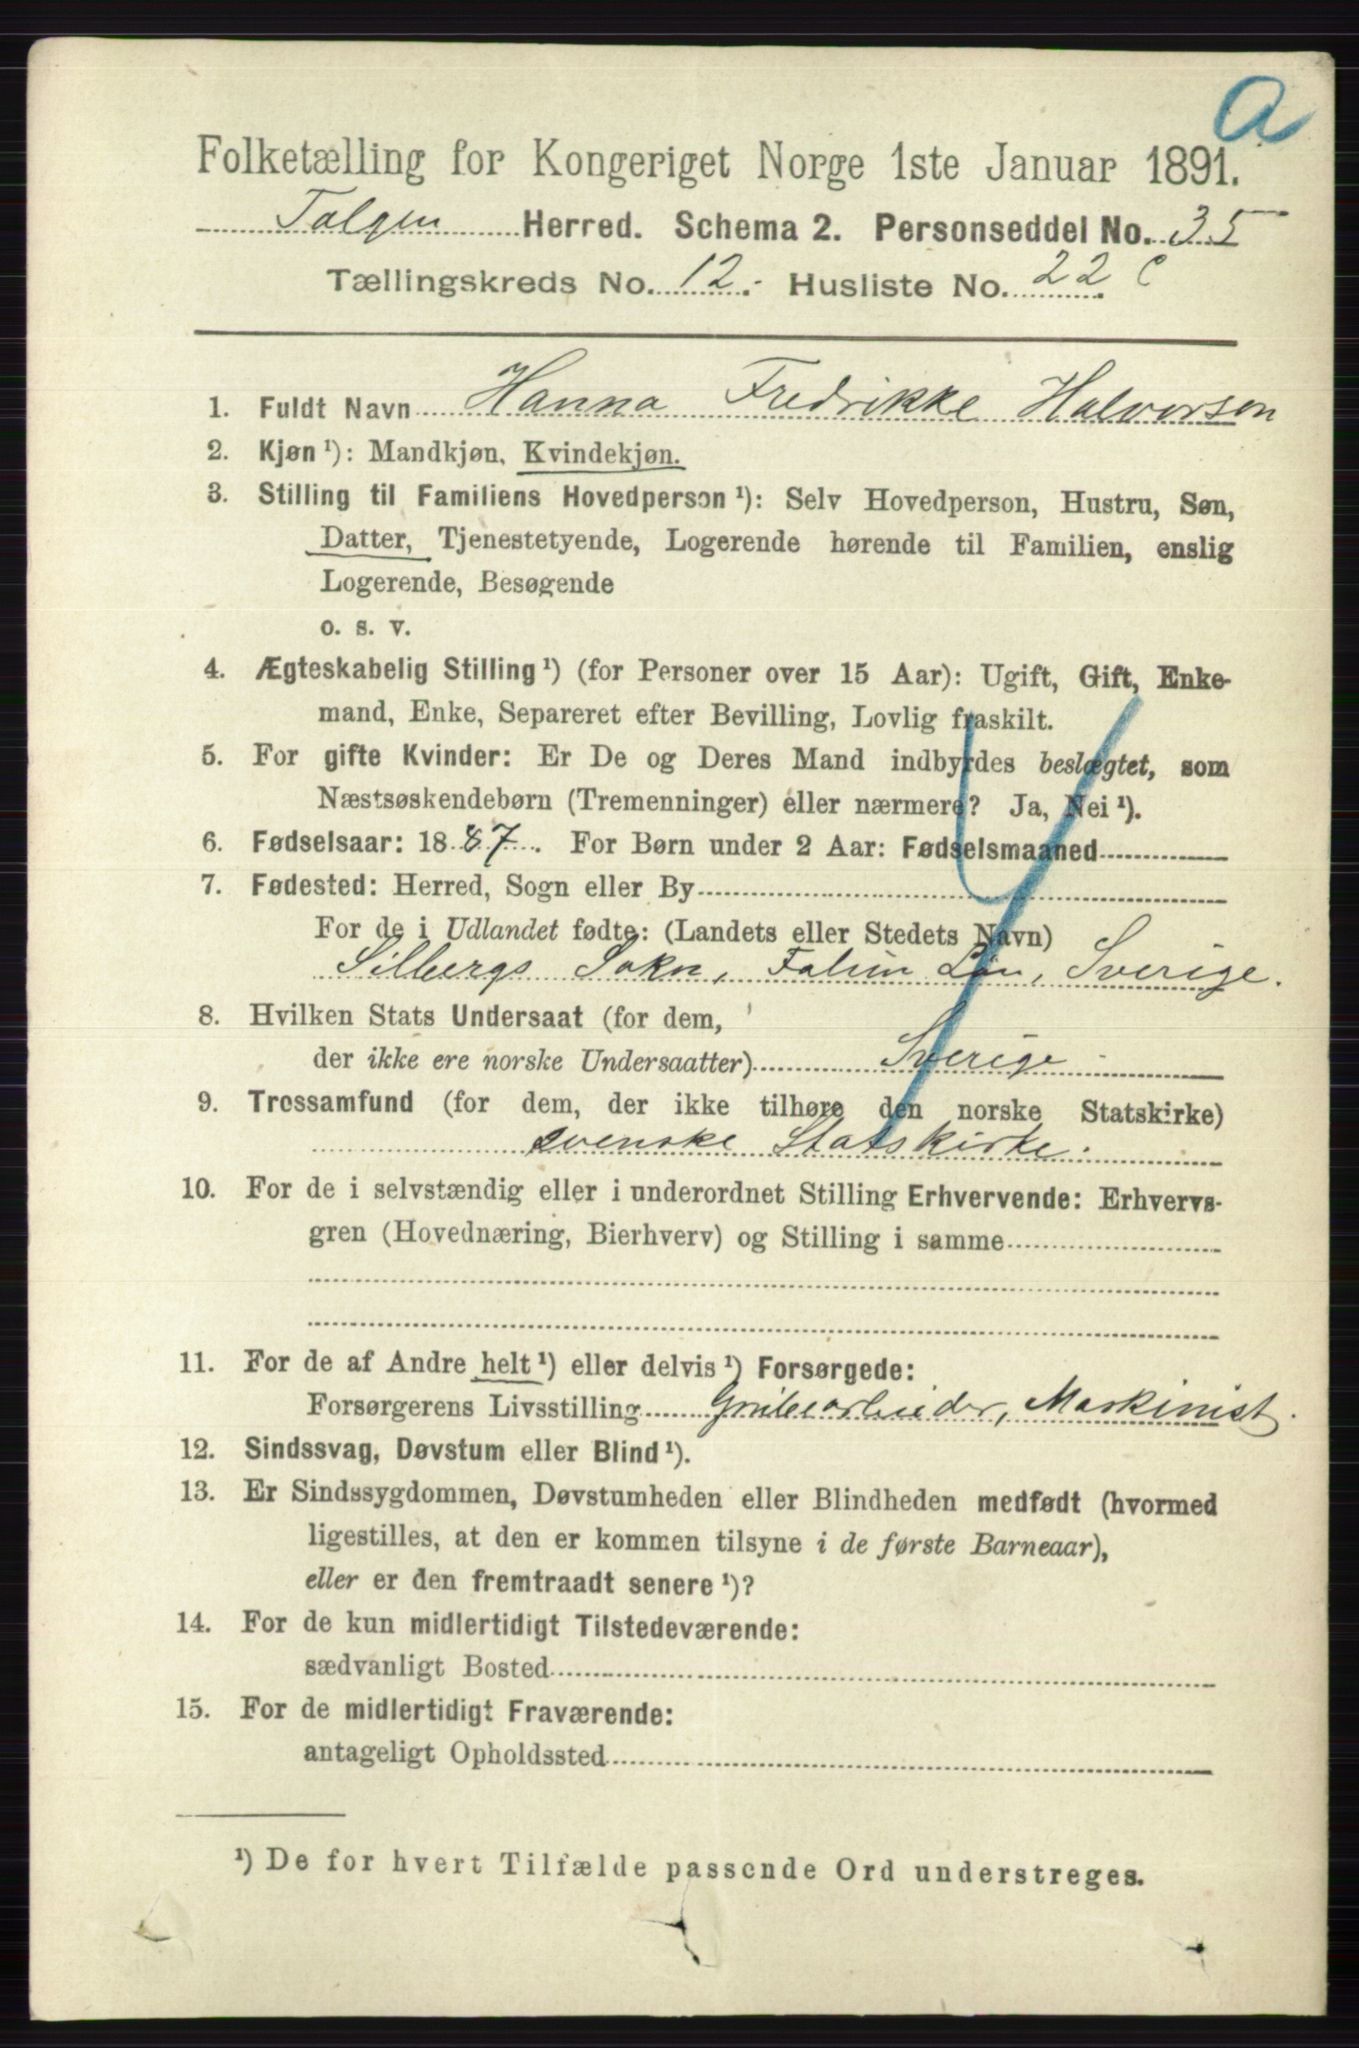 a
Folketælling for Kongeriget Norge 1ste Januar 1891.
Tolgen Herred. Schema 2. Personseddel No. 35
Tællingskreds No. 12. Husliste No. 22 c
1. Fuldt Navn Hanna Fredrikke Halvorsen
2. Kjøn ¹): Mandkjøn, Kvindekjøn.
3. Stilling til Familiens Hovedperson ¹): Selv Hovedperson, Hustru, Søn,
Datter, Tjenestetyende, Logerende hørende til Familien, enslig
Logerende, Besøgende
o. s. v.
4. Ægteskabelig Stilling ¹) (for Personer over 15 Aar): Ugift, Gift, Enke-
mand, Enke, Separeret efter Bevilling, Lovlig fraskilt.
5. For gifte Kvinder: Er De og Deres Mand indbyrdes beslægtet, som
Næstsøskendebørn (Tremenninger) eller nærmere? Ja, Nei ¹).
6. Fødselsaar: 1887. For Børn under 2 Aar: Fødselsmaaned
7. Fødested: Herred, Sogn eller By
For de i Udlandet fødte: (Landets eller Stedets Navn)
Silbergs Sokn, Falun Län, Sverige.
8. Hvilken Stats Undersaat (for dem,
der ikke ere norske Undersaatter) Sverige
9. Trossamfund (for dem, der ikke tilhøre den norske Statskirke)
svenske Statskirke.
10. For de i selvstændig eller i underordnet Stilling Erhvervende: Erhvervs-
gren (Hovednæring, Bierhverv) og Stilling i samme
11. For de af Andre helt ¹) eller delvis ¹) Forsørgede:
Forsørgerens Livsstilling Grubearbeider, Maskinist.
12. Sindssvag, Døvstum eller Blind ¹).
13. Er Sindssygdommen, Døvstumheden eller Blindheden medfødt (hvormed
ligestilles, at den er kommen tilsyne i de første Barneaar),
eller er den fremtraadt senere ¹)?
14. For de kun midlertidigt Tilstedeværende:
sædvanligt Bosted
15. For de midlertidigt Fraværende:
antageligt Opholdssted
¹) De for hvert Tilfælde passende Ord understreges.